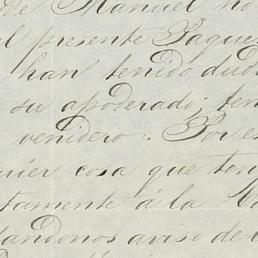 de Manuel no
el presente Paque
han tenido dud
su apoderado; ten
venidero. Por es
uier cosa que ten
tamente á la
tandonos aviso de